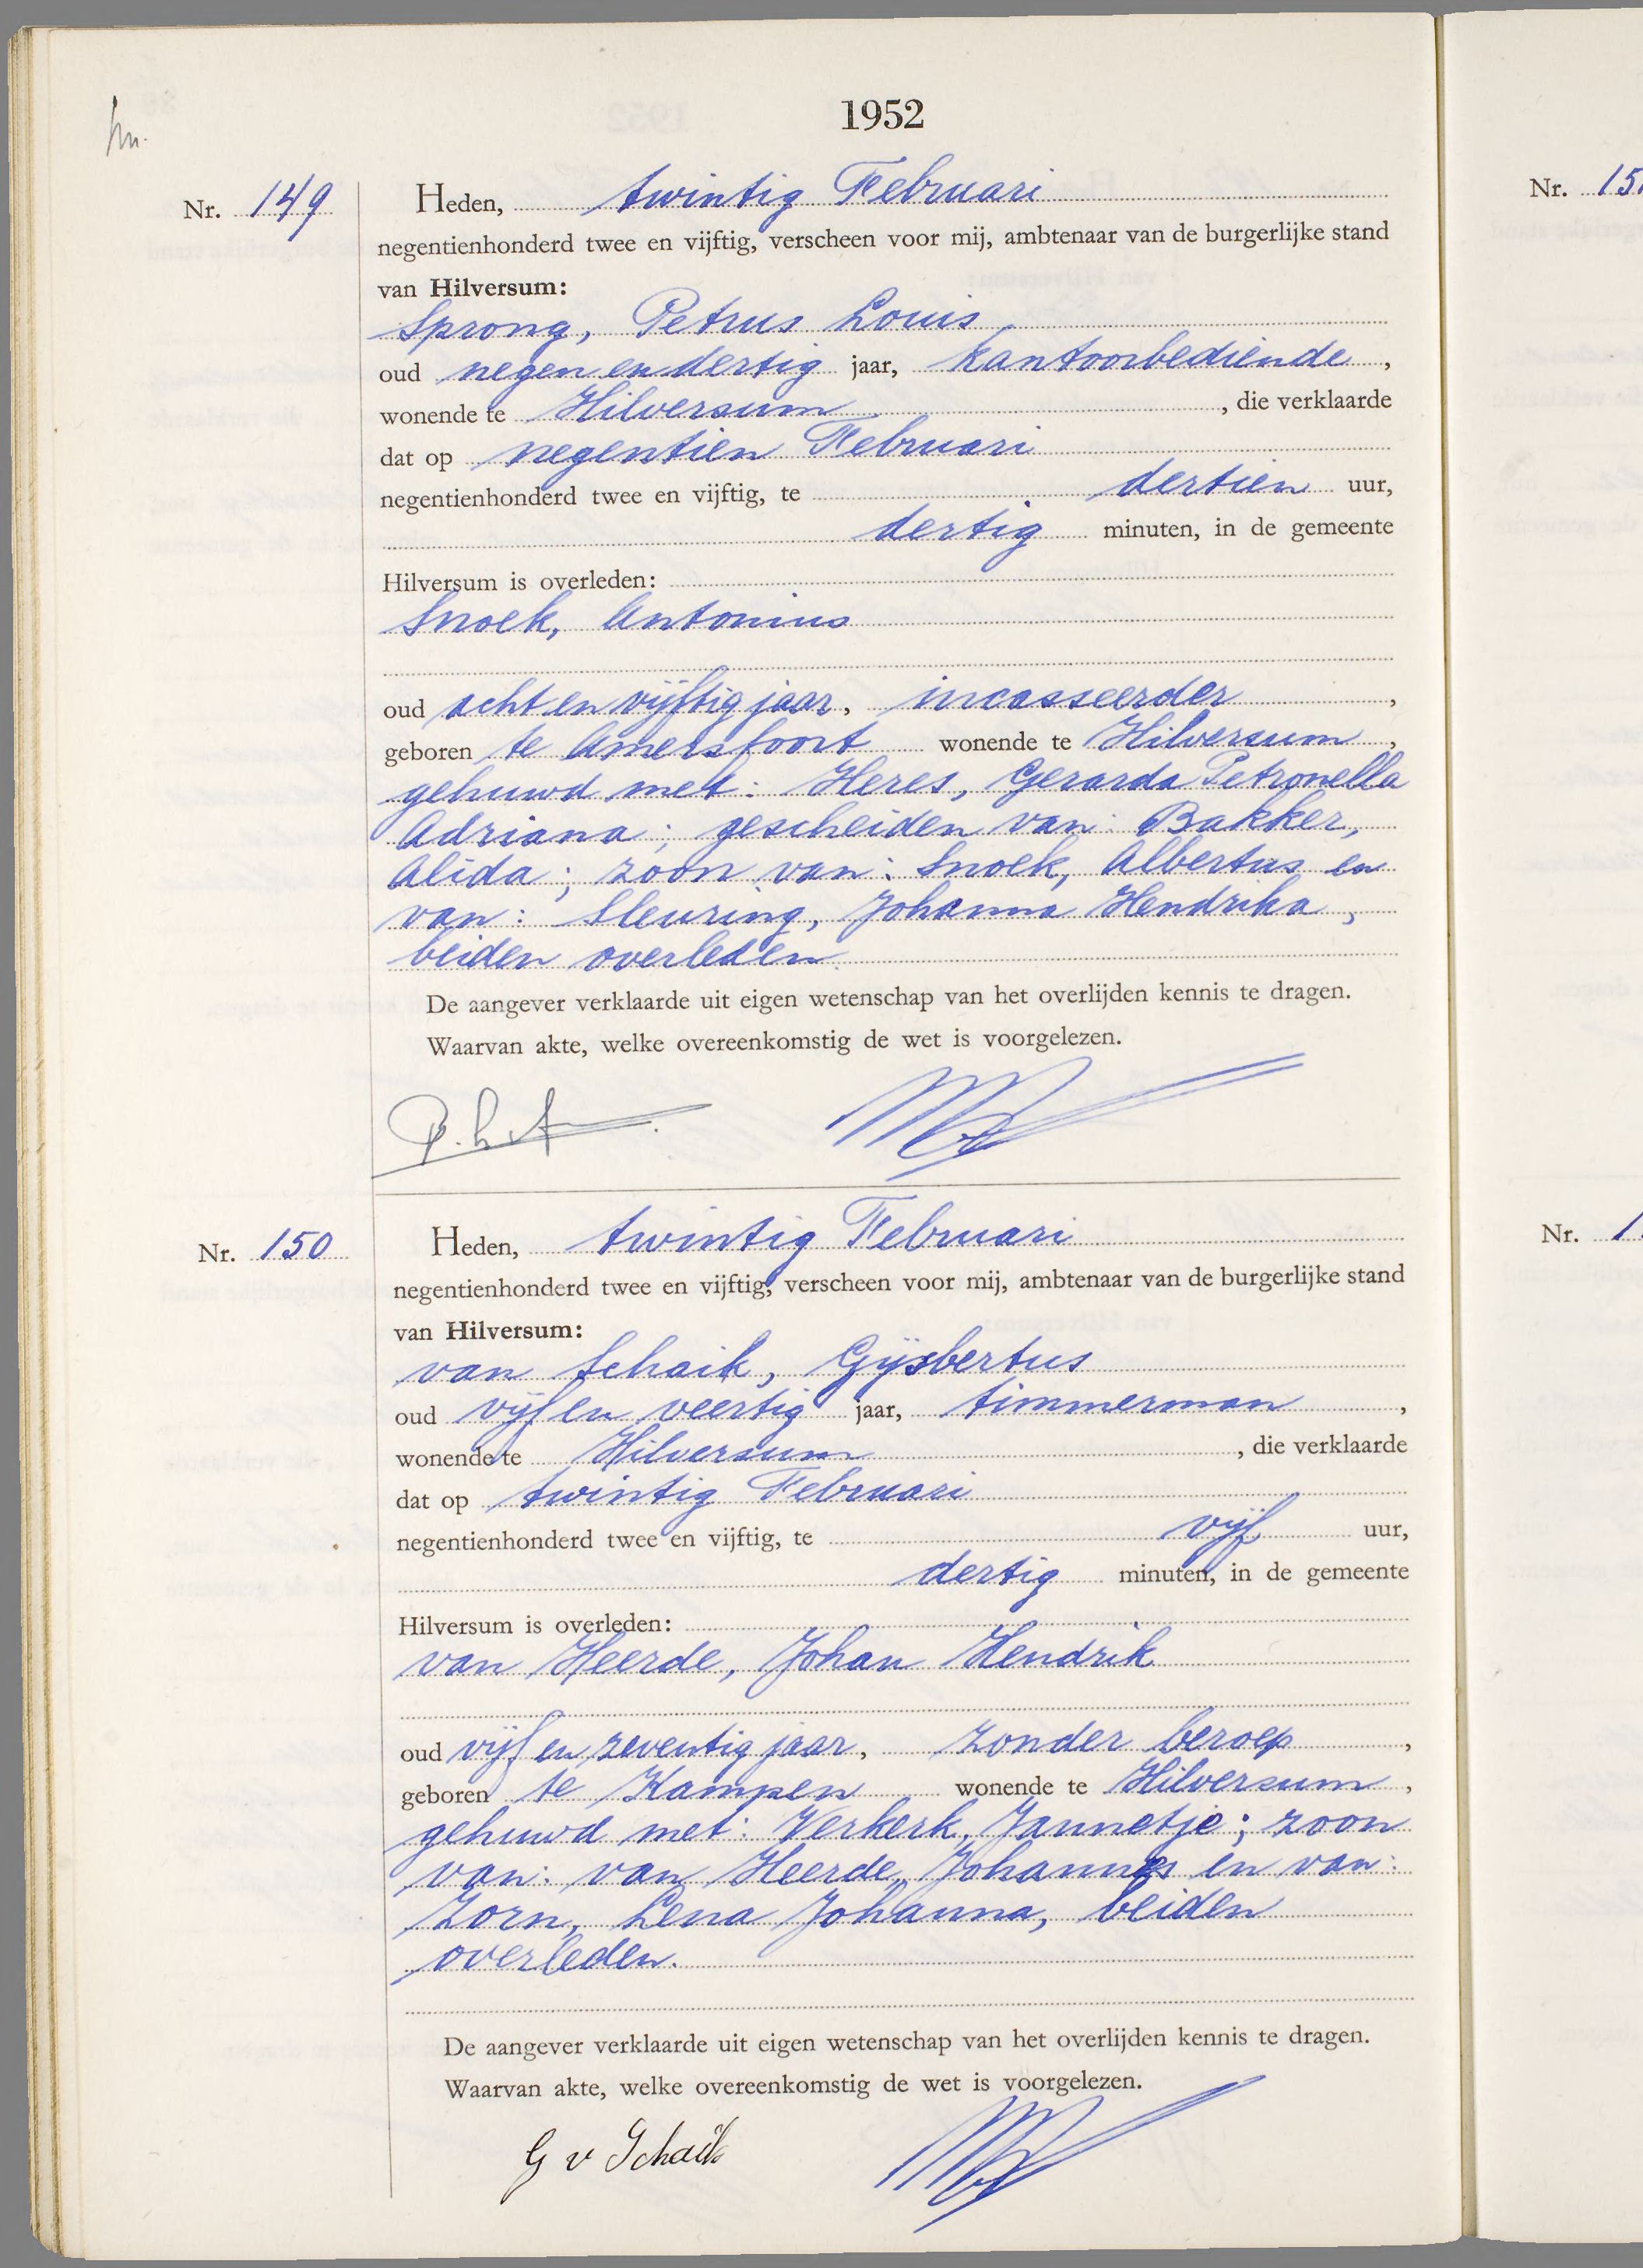 1952
Nr. 149
Heden, twintig Februari
negentienhonderd twee en vijftig, verscheen voor mij, ambtenaar van de burgerlijke stand
van Hilversum:
Sprong, Petrus Louis
oud negen en dertig jaar, kantoorbediende,
wonende te Hilversum, die verklaarde
dat op negentien Februari
negentienhonderd twee en vijftig, te dertien uur,
dertig minuten, in de gemeente
Hilversum is overleden:
Snoek, Antonius
oud acht en vijftig jaar, incasseerder,
geboren te Amersfoort wonende te Hilversum,
gehuwd met: Heres, Gerarda Petronella
Adriana; gescheiden van: Bakker,
Alida; zoon van: Snoek, Albertus en
van: Sleuring, Johanna Hendrika,
beiden overleden.
De aangever verklaarde uit eigen wetenschap van het overlijden kennis te dragen.
Waarvan akte, welke overeenkomstig de wet is voorgelezen.
Nr. 150
Heden, twintig Februari
negentienhonderd twee en vijftig, verscheen voor mij, ambtenaar van de burgerlijke stand
van Hilversum:
van Schaik, Gijsbertus
oud vijf en veertig jaar, timmerman,
wonende te Hilversum, die verklaarde
dat op twintig Februari
negentienhonderd twee en vijftig, te vijf uur,
dertig minuten, in de gemeente
Hilversum is overleden:
van Heerde, Johan Hendrik
oud vijf en zeventig jaar, zonder beroep,
geboren te Kampen wonende te Hilversum,
gehuwd met: Verkerk, Jannetje; zoon
van: van Heerde, Johannes en van:
Zorn, Lena Johanna, beiden
overleden.
De aangever verklaarde uit eigen wetenschap van het overlijden kennis te dragen.
Waarvan akte, welke overeenkomstig de wet is voorgelezen.
G v Schaik
Nr. 15
Nr. 1